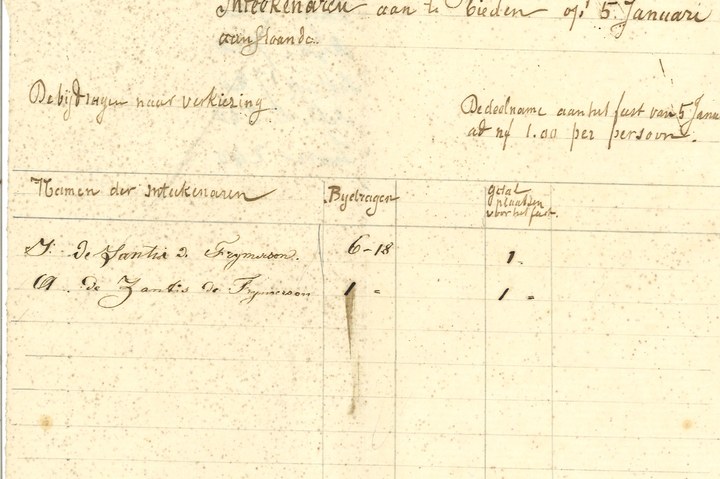 Inteekenaren aan te bieden op 5 Januari
aanstaande.
De bijdragen naar verkiezing.
De deelname aan het feest van 5 Janu
ad nf 1.00 per persoon.
Namen der inteekenaren
Bijdragen
getal
plaatsen
voor het feest.
J. de Zantis d. Frymerson.
6-18
1.
A. de Zantis de Frymerson
1 "
1 "